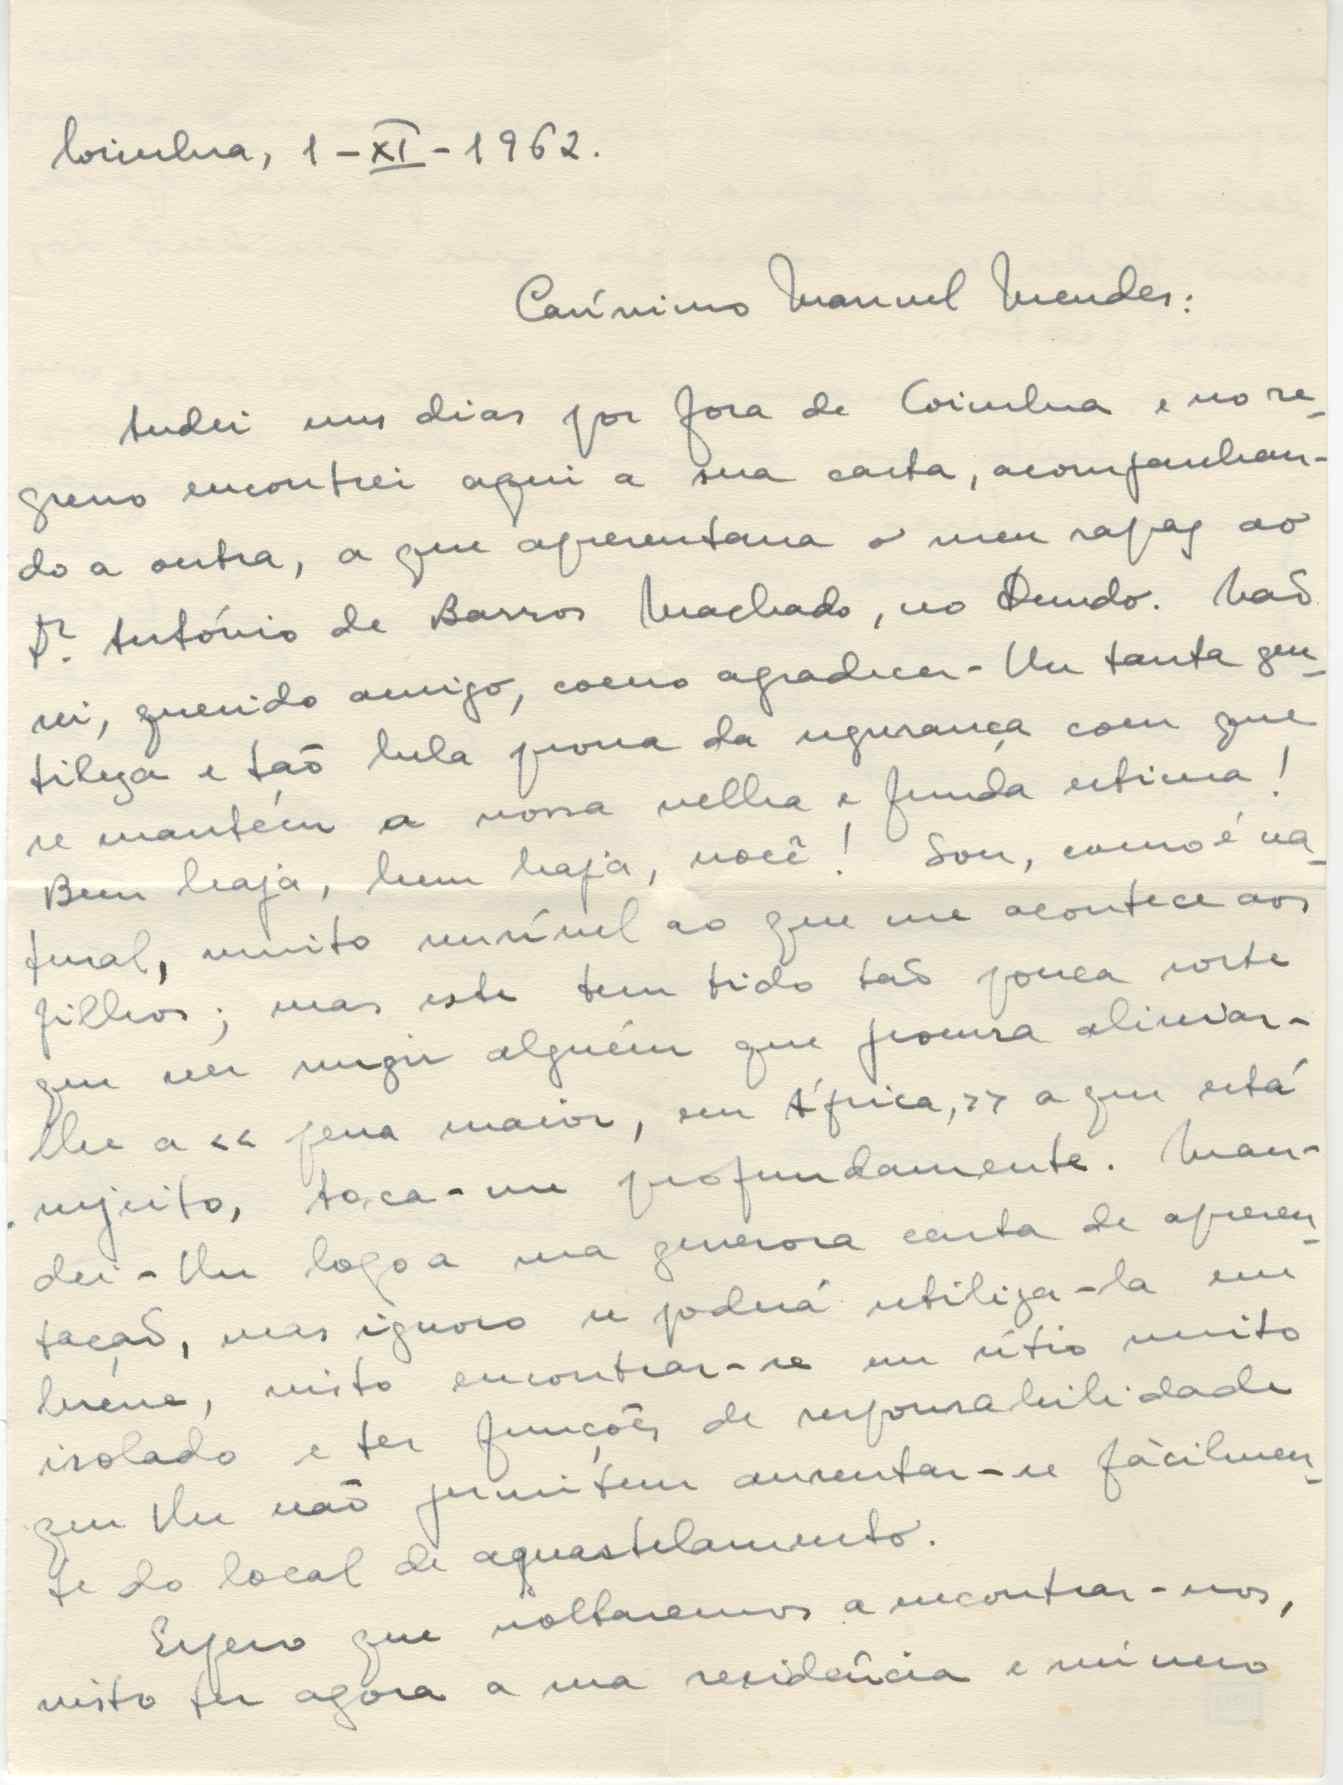 Coimbra, 1-XI-1962.
Caríssimo Manuel Mendes:
Andei uns dias por fora de Coimbra e no re-
gresso encontrei aqui a sua carta, acompanhan-
do a outra, a que apresentava o meu rapaz ao
Dr. António de Barros Machado, no Dundo. Não
sei, querido amigo, como agradecer-lhe tanta gen-
tileza e tão bela prova da segurança com que
se mantém a nossa velha e funda estima!
Bem haja, bem haja, você! Sou, como é na-
tural, muito sensível ao que me acontece aos
filhos; mas este tem tido tão pouca sorte
que ver surgir alguém que procura aliviar-
lhe a «pena maior, em África,» a que está
sujeito, toca-me profundamente. Man-
dei-lhe logo a sua generosa carta de apresen-
tação, mas ignoro se poderá utilizá-la em
breve, visto encontrar-se em sítio muito
isolado e ter funções de responsabilidade
que lhe não permitem ausentar-se fàcilmen-
te do local de aquartelamento.
Espero que voltaremos a encontrar-nos,
visto ter agora a sua residência e número